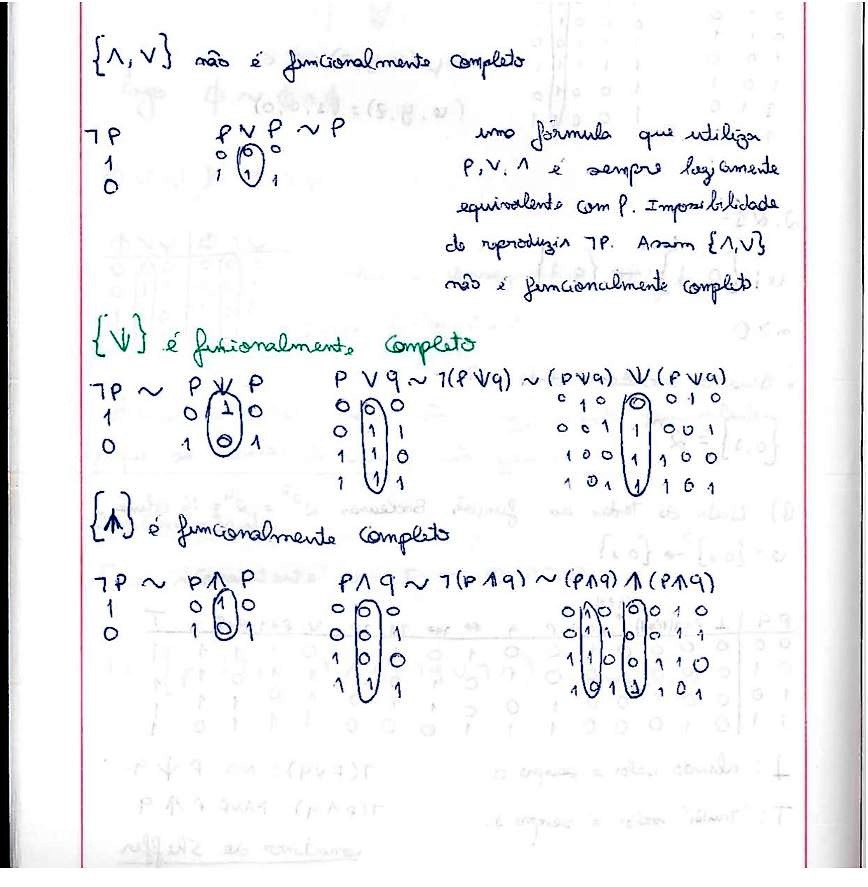 {∧, ∨} não é funcionalmente completo
¬P P ∨ P ~ P
1 0 0 0
0 1 1 1
uma fórmula que utiliza
P, ∨, ∧ é sempre logicamente
equivalente com P. Impossibilidade
de reproduzir ¬P. Assim {∧,∨}
não é funcionalmente completo.
{⩛} é funcionalmente completo
¬P ~ P ⩛ P P ∨ q ~ ¬(P ⩛ q) ~ (P ⩛ q) ⩛ (P ⩛ q)
1 0 1 0 0 0 0 0 1 0 0 0 1 0
0 1 0 1 0 1 1 0 0 1 1 0 0 1
1 1 0 1 0 0 1 1 0 0
1 1 1 1 0 1 1 1 0 1
{⩚} é funcionalmente completo
¬P ~ P ⩚ P P ∧ q ~ ¬(P ⩚ q) ~ (P ⩚ q) ⩚ (P ⩚ q)
1 0 1 0 0 0 0 0 1 0 0 0 1 0
0 1 0 1 0 0 1 0 1 1 0 0 1 1
1 0 0 1 1 0 0 1 1 0
1 1 1 1 0 1 1 1 0 1